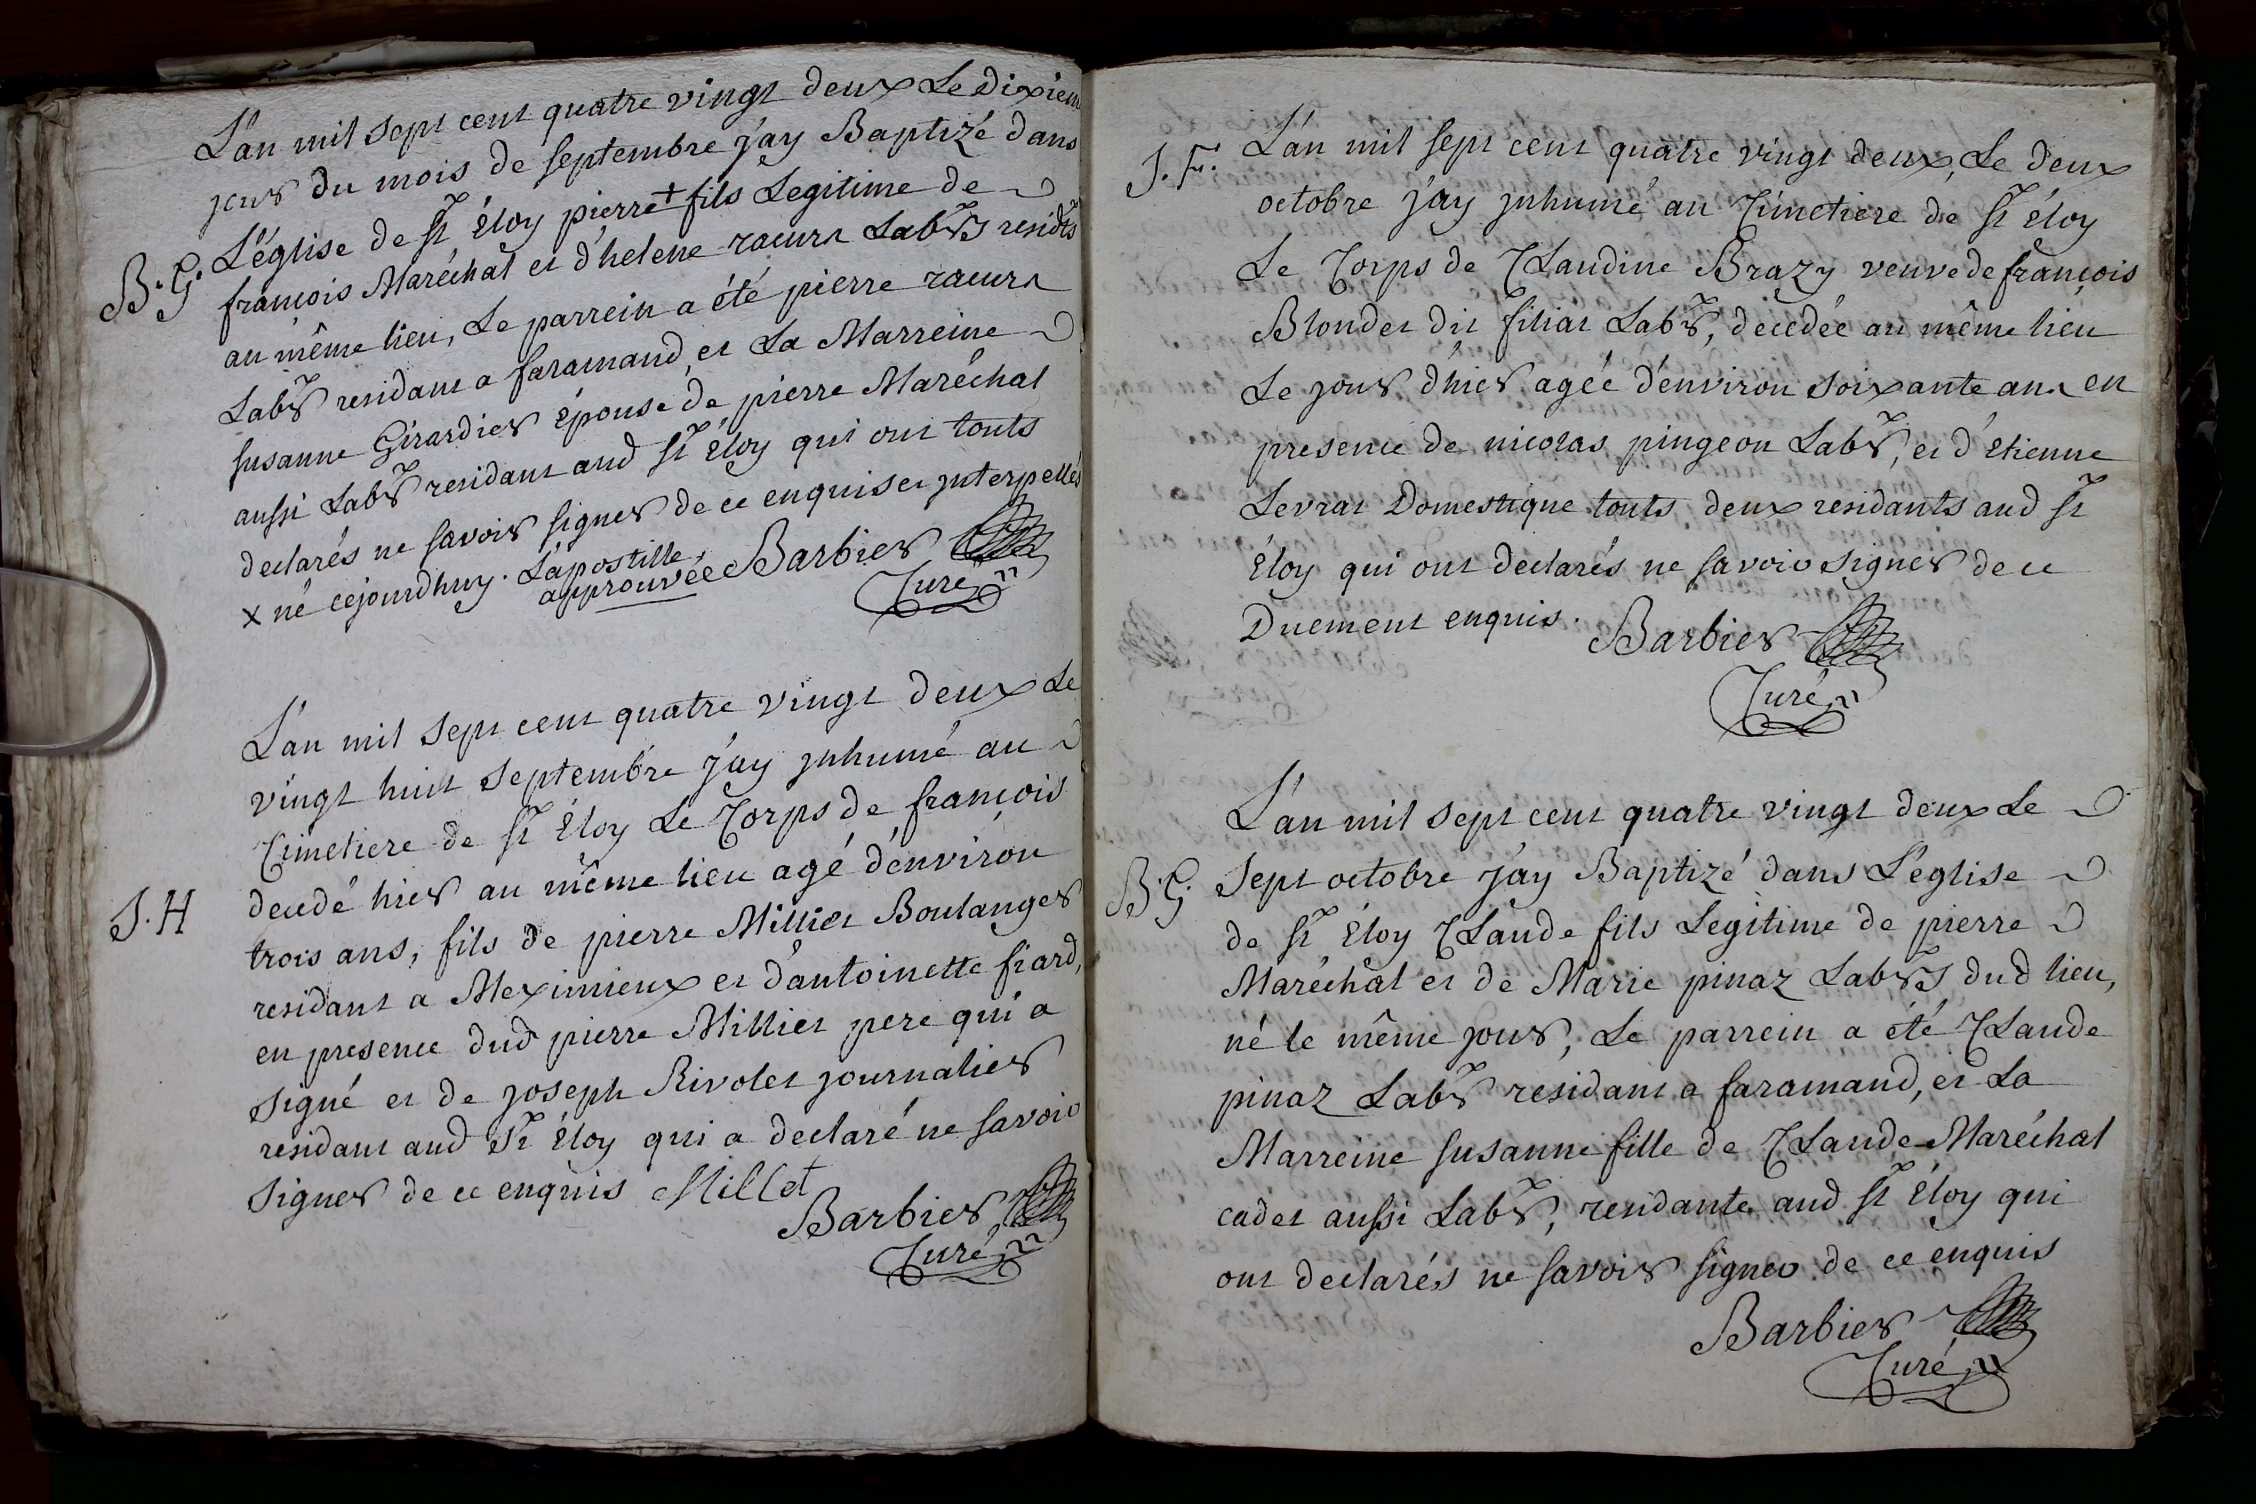 L'an mil sept cent quatre vingt deux Le Dixiem
jour du mois de septembre j'ay Baptizé dans
L'église de St Éloy pierre + fils Legitime de
B. G.
françois Maréchal et d'helene racurt Labrs residts
au même lieu, Le parrein a été pierre racurt
Labr residant a faramand, et La Marreine
susanne Girardier épouse de pierre Maréchal
aussi Labr residant aud St Éloy qui ont touts
declarés ne savoir signer de ce enquis et interpellés
x né cejourdhuy. L'apostille
approuvée Barbier
Curé
L'an mil sept cent quatre vingt deux Le
vingt huit septembre j'ay jnhumé au
Cimetiere de St Éloy Le Corps de françois
decedé hier au même lieu agé d'environ
J. H
trois ans, fils de pierre Milliet Boulanger
residant a Meximieux et d'antoinette fiard,
en presence dud pierre Milliet pere qui a
signé et de joseph Rivolet journalier
residant aud St Éloy qui a declaré ne savoir
signer de ce enquis Millet
Barbier
Curé
J. F.
L'an mil sept cent quatre vingt deux, Le deux
octobre j'ay jnhumé au Cimetiere de St Éloy
Le Corps de Claudine Brazy veuve de françois
Blondet dit filiat Labr, decedée au même lieu
Le jour d'hier agée d'environ soixante ans en
presence de nicolas pingeon Labr, et d'Etienne
Levrat Domestique touts deux residants aud St
Éloy qui ont declarés ne savoir signer de ce
Duement enquis.
Barbier
Curé
L'an mil sept cent quatre vingt deux Le
B. G.
sept octobre j'ay Baptizé dans L'église
de St Éloy Claude fils Legitime de pierre
Maréchal et de Marie pinaz Labrs dud lieu,
né le même jour, Le parrein a été Claude
pinaz Labr residant a faramand, et La
Marreine susanne fille de Claude Maréchal
cadet aussi Labr, residante aud St Éloy qui
ont declarés ne savoir signer de ce enquis
Barbier
Curé